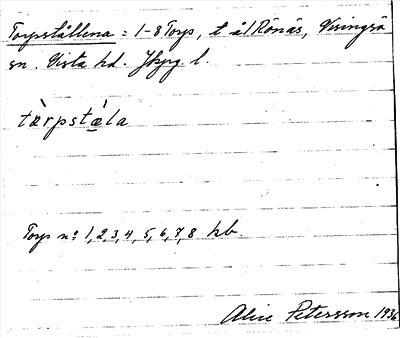 Torpställena : 1-8 Torp, t ål Rönäs, Visingsö
sn. Vista hd. Jkpg. l.
tàrpstæ̀la
Torp no 1,2,3,4,5,6,7,8 hb.
Alice Petersson 1936